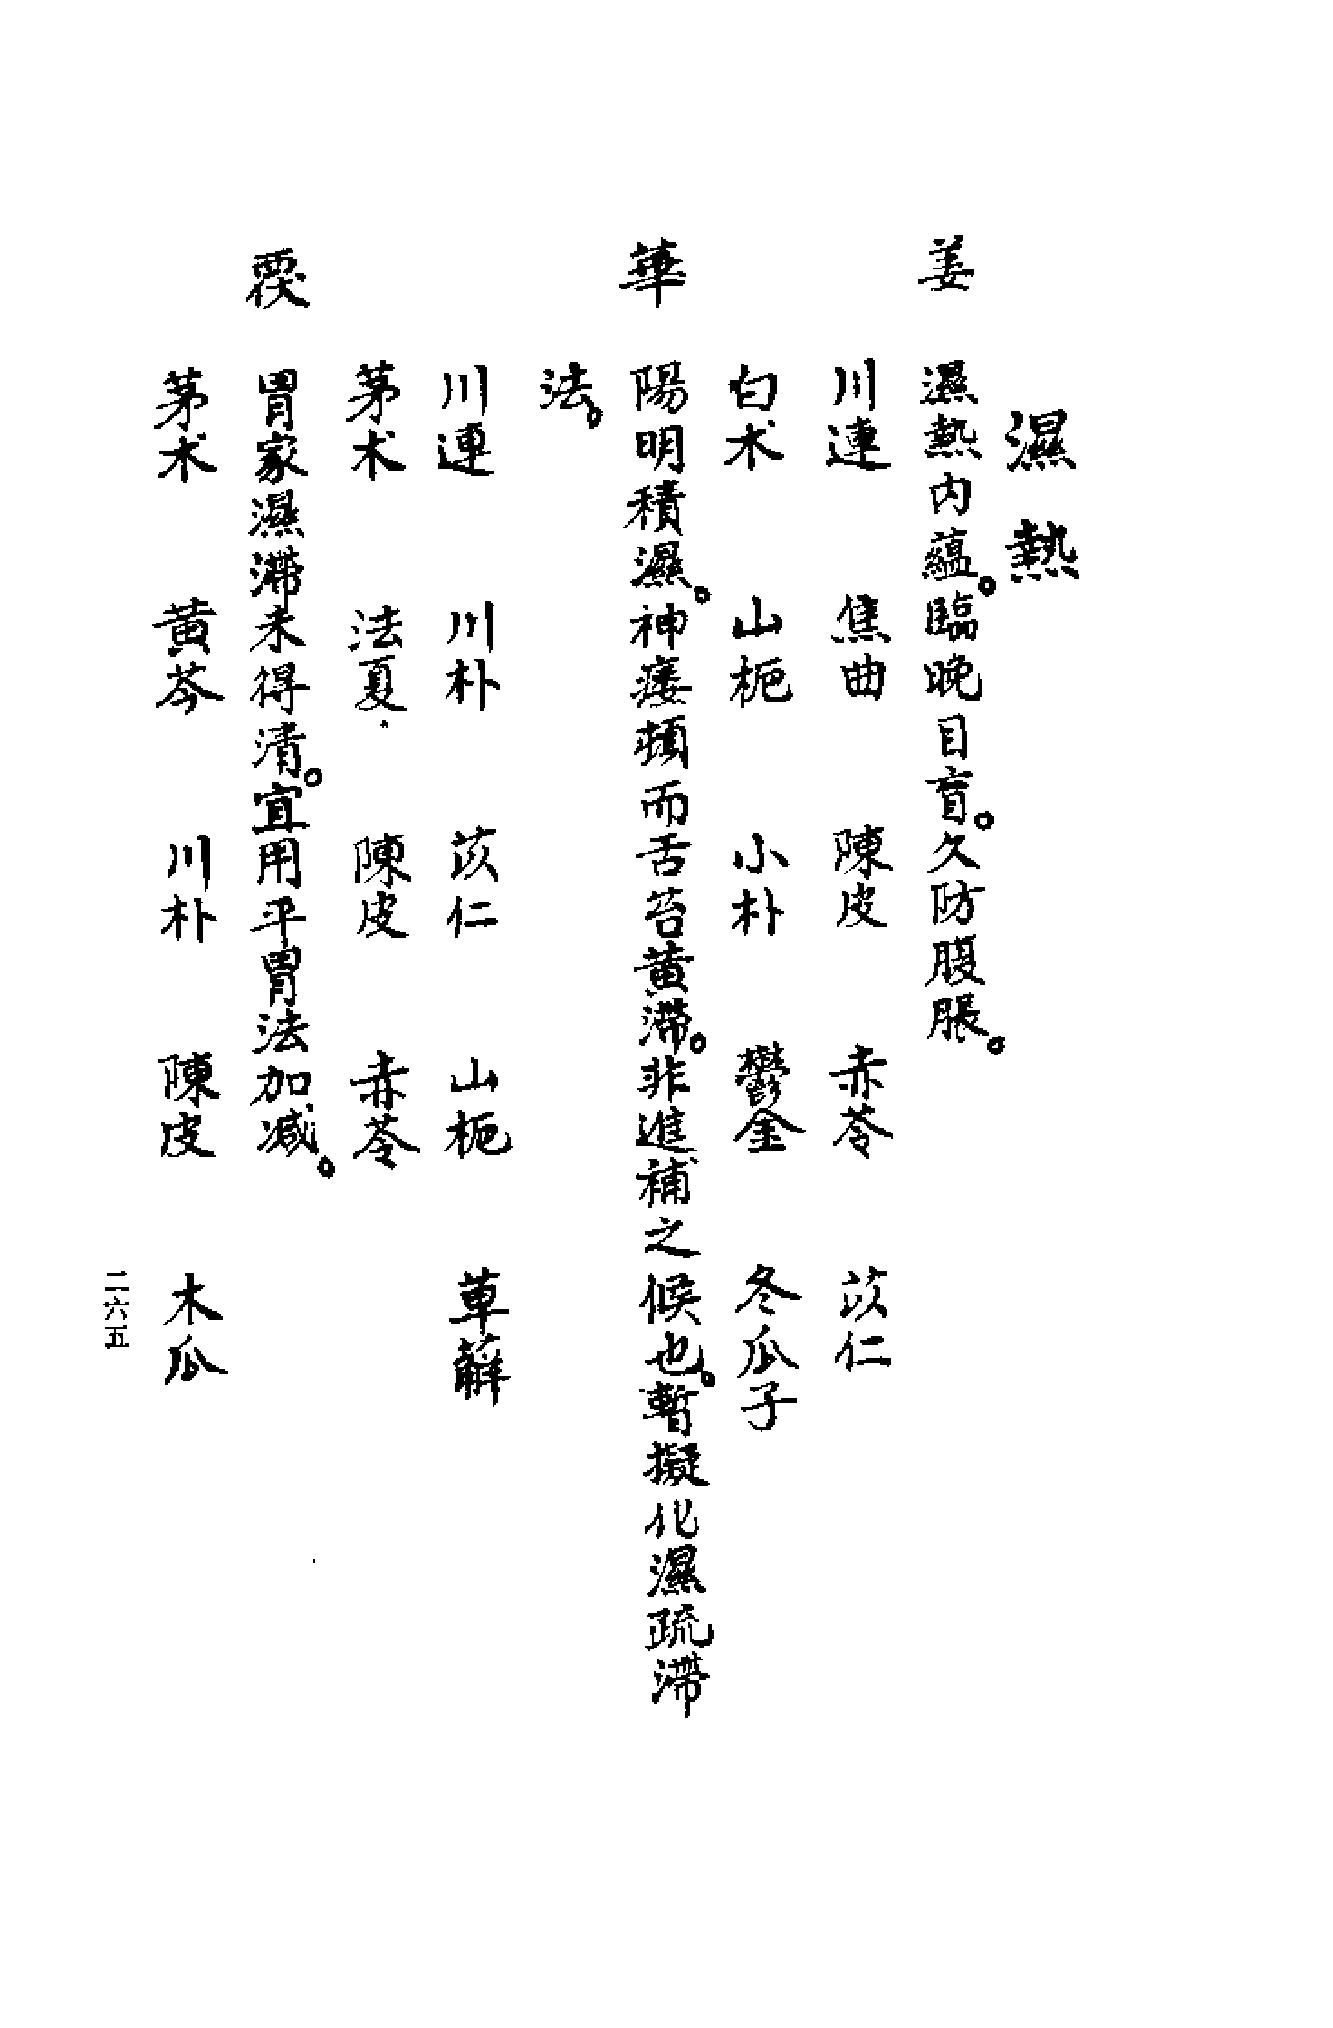 濕熱
姜 濕熱内蘊。臨晚目盲。久防腹脹。
川連 焦曲 陳皮 赤苓 苡仁
白术 山栀 小朴 鬱金 冬瓜子
華 陽明積濕。神痿頓而舌苔黃滯。非進補之候也。暫擬化濕疏滯
法。
川連 川朴 苡仁 山栀 萆薢
茅术 法夏 陳皮 赤苓
胃家濕滯未得清。宜用平胃法加减。
茅术 黄芩 川朴 陳皮 木瓜
二六五